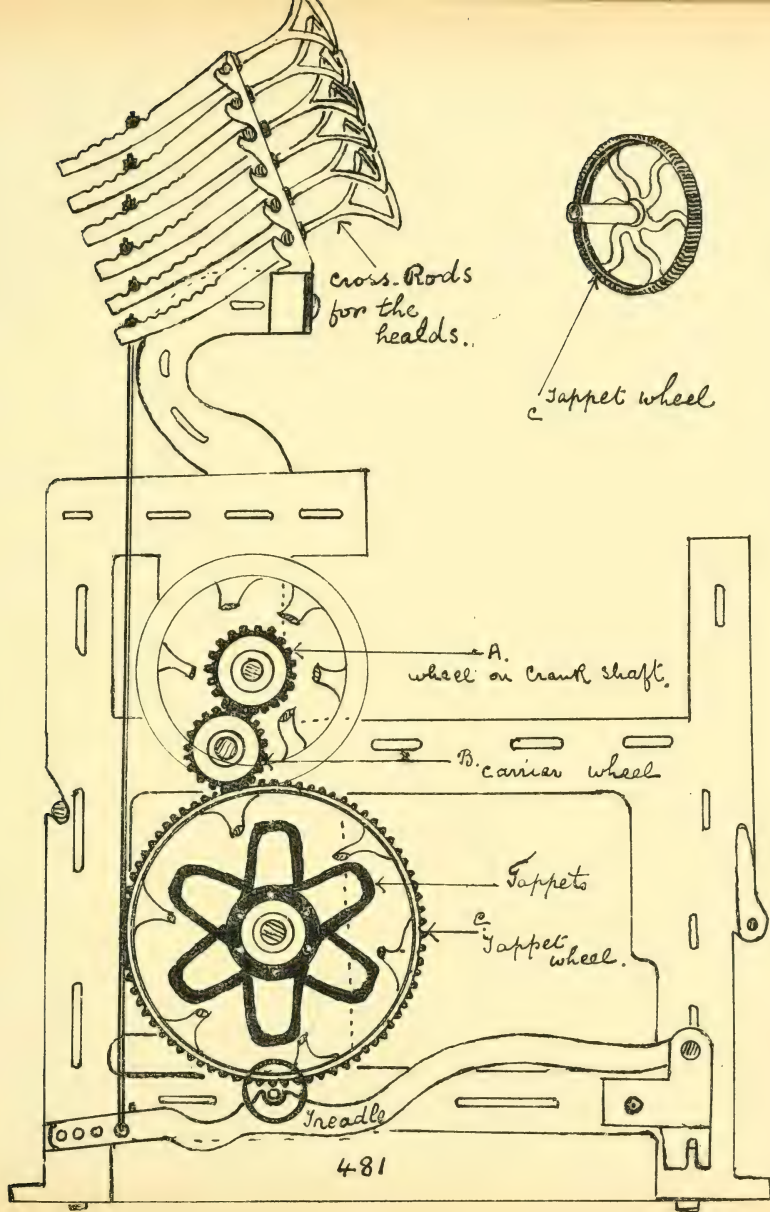 Cross-Rods
for the
healds.
C Tappet wheel
A.
wheel on Crank shaft.
B. carrier wheel
Tappets
C.
Tappet
wheel.
Treadle
481